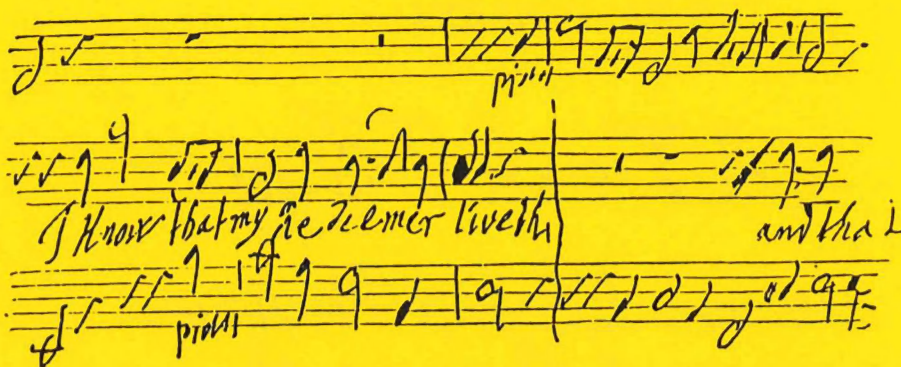 pian
I Know that my redeemer liveth
and that
pian